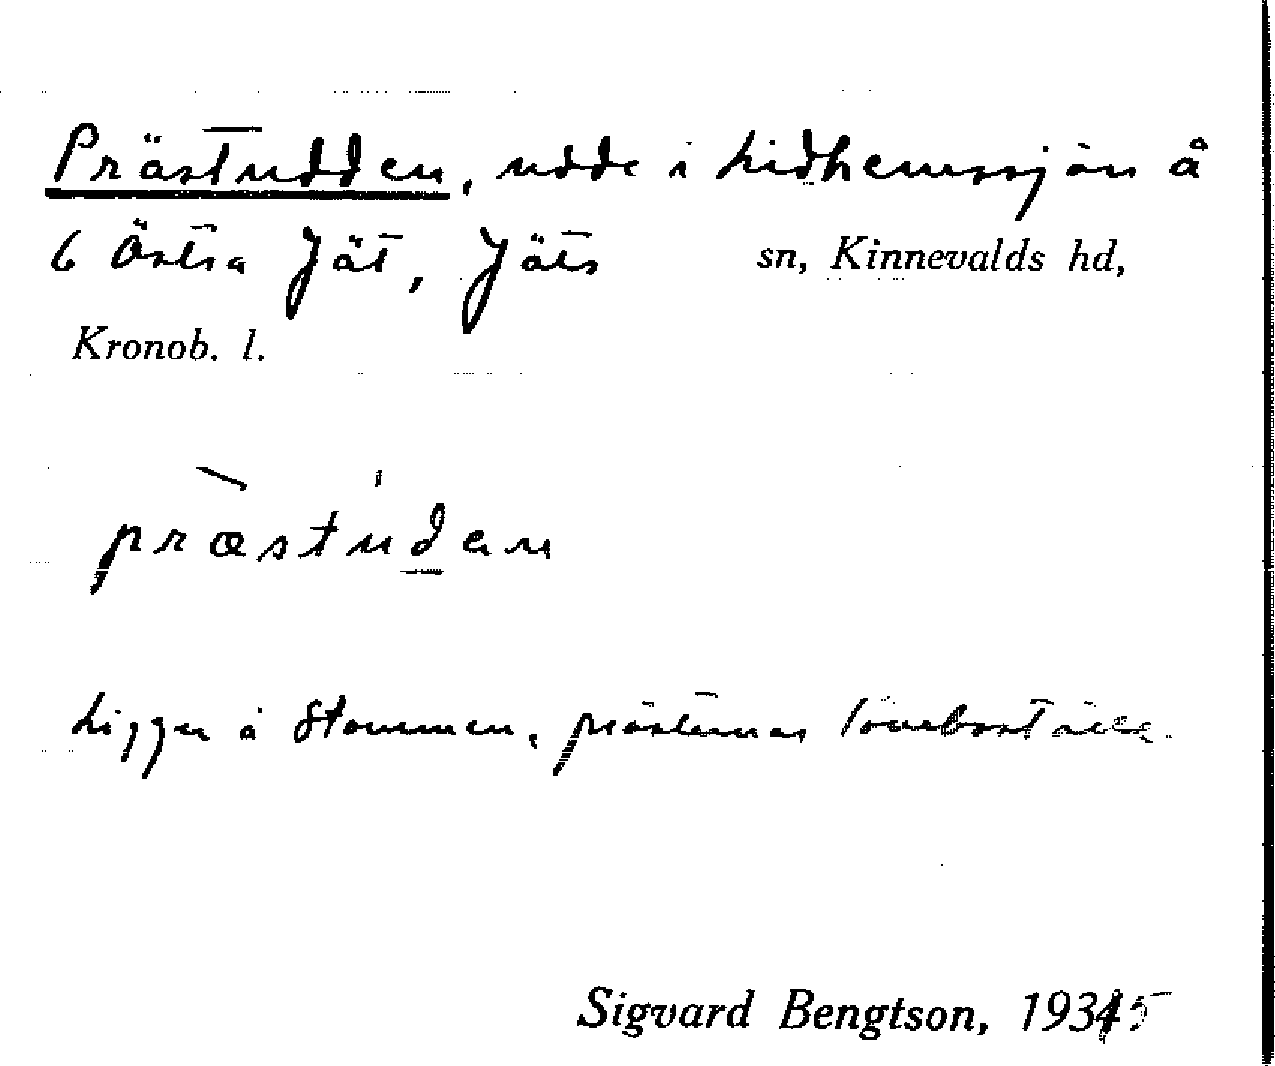 Prästudden, udde i Lidhemssjön å
6 Östra Jät, Jäts sn, Kinnevalds hd,
Kronob. l.
præstuden
Ligger å Stommen, prästernas löneboställe.
Sigvard Bengtson, 1935